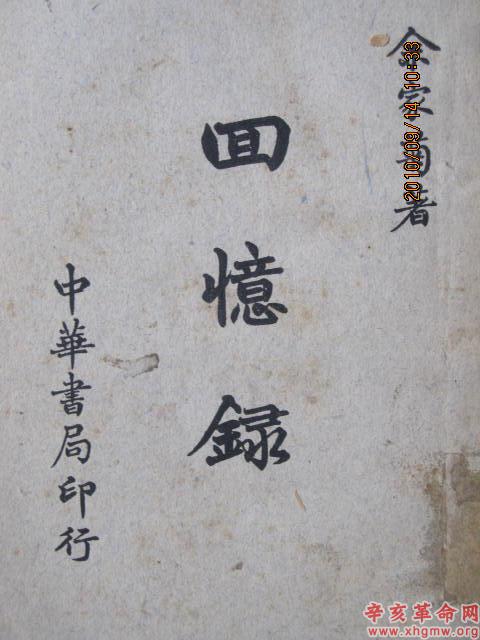 余家菊著
回憶録
中華書局印行
2010/09/14 10:33
辛亥革命网
www.xhgmw.org